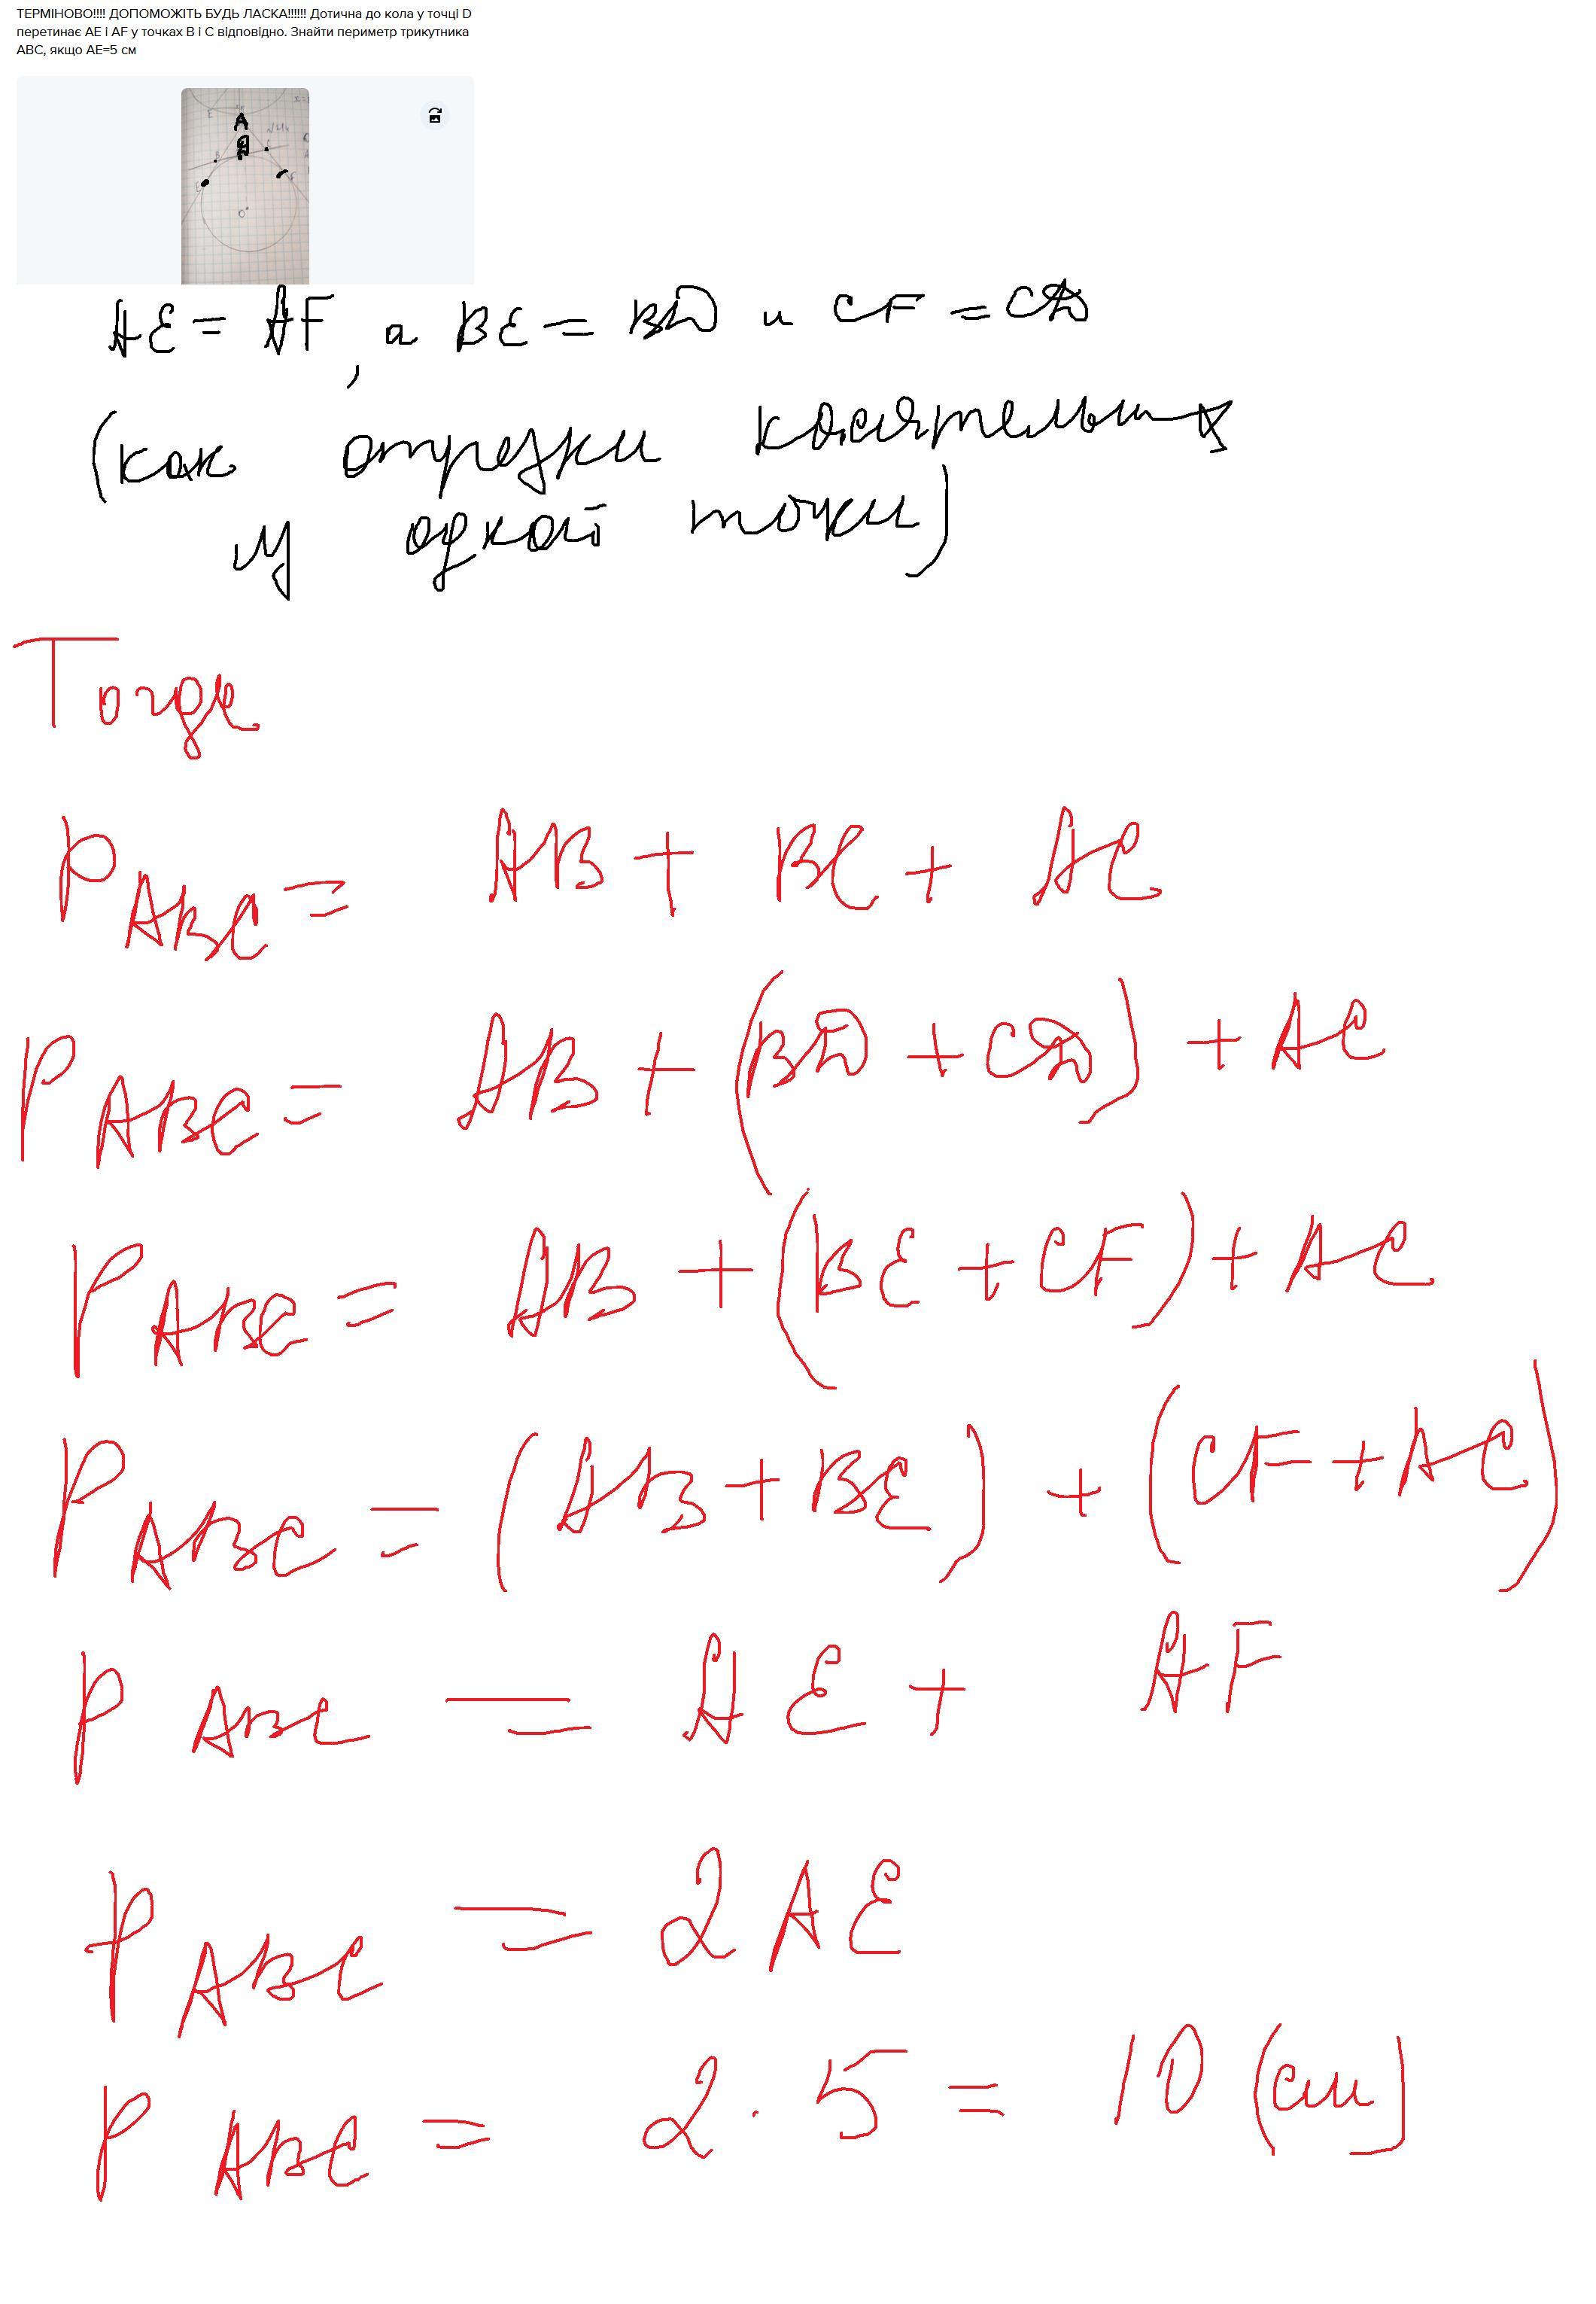 ТЕРМІНОВО!!!! ДОПОМОЖІТЬ БУДЬ ЛАСКА!!!!!! Дотична до кола у точці D
перетинає AE і AF у точках B і C відповідно. Знайти периметр трикутника
ABC, якщо AE=5 см
A
O
AE = AF, а BE = BD и CF = CD
(как отрезки касательных
из одной точки)
Тогда
P ABC = AB + BC + AC
P ABC = AB + (BD + CD) + AC
P ABC = AB + (BE + CF) + AC
P ABC = (AB + BE) + (CF + AC)
P ABC = AE + AF
P ABC = 2AE
P ABC = 2 · 5 = 10 (см)